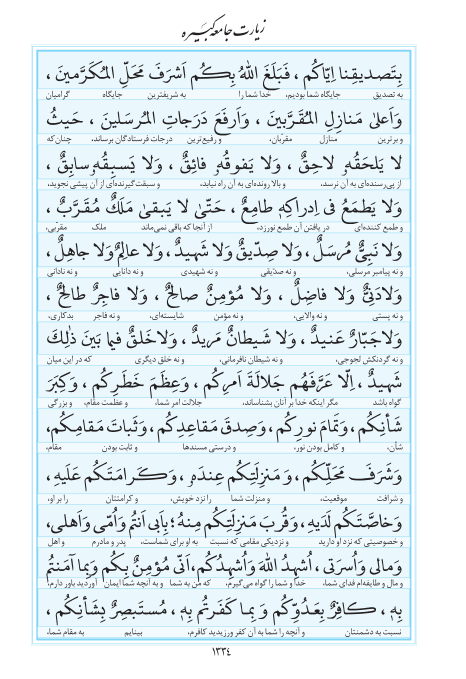 زیارت جامعه کبیره
بِتَصدیقِنا اِیّاکُم ، فَبَلَغَ اللهُ بِکُم اَشرَفَ مَحَلِّ المُکَرَّمینَ ،
به تصدیق جایگاه شما بودیم، خدا شما را به شریفترین جایگاه گرامیان
وَاَعلیٰ مَنازِلِ المُقَرَّبینَ ، وَاَرفَعَ دَرَجاتِ المُرسَلینَ ، حَیثُ
و برترین منازل مقرّبان، و رفیع‌ترین درجات فرستادگان برساند، چنان‌که
لا یَلحَقُهُ لاحِقٌ ، وَلا یَفوقُهُ فائِقٌ ، وَلا یَسبِقُهُ سابِقٌ ،
از پی‌رسنده‌ای به آن نرسد، و بالا رونده‌ای به آن راه نیابد، و سبقت‌گیرنده‌ای از آن پیشی نجوید،
وَلا یَطمَعُ فی اِدراکِهِ طامِعٌ ، حَتّیٰ لا یَبقیٰ مَلَکٌ مُقَرَّبٌ ،
و طمع کننده‌ای در یافتن آن طمع نورزد، از آنجا که باقی نمی‌ماند ملک مقرّبی،
وَلا نَبِیٌّ مُرسَلٌ ، وَلا صِدّیقٌ وَلا شَهیدٌ ، وَلا عالِمٌ وَلا جاهِلٌ ،
و نه پیامبر مرسلی، و نه صدّیقی و نه شهیدی و نه دانایی و نه نادانی
وَلادَنِیٌّ وَلا فاضِلٌ ، وَلا مُؤمِنٌ صالِحٌ ، وَلا فاجِرٌ طالِحٌ ،
و نه پستی و نه والایی، و نه مؤمن شایسته‌ای، و نه فاجر بدکاری،
وَلاجَبّارٌ عَنیدٌ ، وَلا شَیطانٌ مَریدٌ ، وَلاخَلقٌ فیما بَینَ ذٰلِکَ
و نه گردنکش لجوجی، و نه شیطان نافرمانی، و نه خلق دیگری که در این میان
شَهیدٌ ، اِلّا عَرَّفَهُم جَلالَةَ اَمرِکُم ، وَعِظَمَ خَطَرِکُم ، وَکِبَرَ
گواه باشد مگر اینکه خدا بر آنان بشناساند، جلالت امر شما، و عظمت مقام، و بزرگی
شَأنِکُم ، وَتَمامَ نورِکُم ، وَصِدقَ مَقاعِدِکُم ، وَثَباتَ مَقامِکُم،
شأن، و کامل بودن نور، و درستی مسندها و ثابت بودن مقام،
وَشَرَفَ مَحَلِّکُم ، وَمَنزِلَتِکُم عِندَهُ ، وَکَرامَتَکُم عَلَیهِ ،
و شرافت موقعیت، و منزلت شما را نزد خویش، و کرامتتان را بر او،
وَخاصَّتَکُم لَدَیهِ ، وَقُربَ مَنزِلَتِکُم مِنهُ ؛ بِاَبی اَنتُم وَاُمّی وَاَهلی،
و خصوصیتی که نزد او دارید و نزدیکی مقامی که نسبت به او برای شماست، پدر و مادرم و اهل
وَمالی وَاُسرَتی ، اُشهِدُ اللهَ وَاُشهِدُکُم ، اَنّی مُؤمِنٌ بِکُم وَبِما آمَنتُم
و مال و طایفه‌ام فدای شما، خدا و شما را گواه می‌گیرم، که من به شما و به آنچه شما ایمان آوردید باور دارم،
بِهِ ، کافِرٌ بِعَدُوِّکُم وَ بِما کَفَرتُم بِهِ ، مُستَبصِرٌ بِشَأنِکُم ،
نسبت به دشمنتان و آنچه را شما به آن کفر ورزیدید کافرم، بینایم به مقام شما،
۱۳۳٤